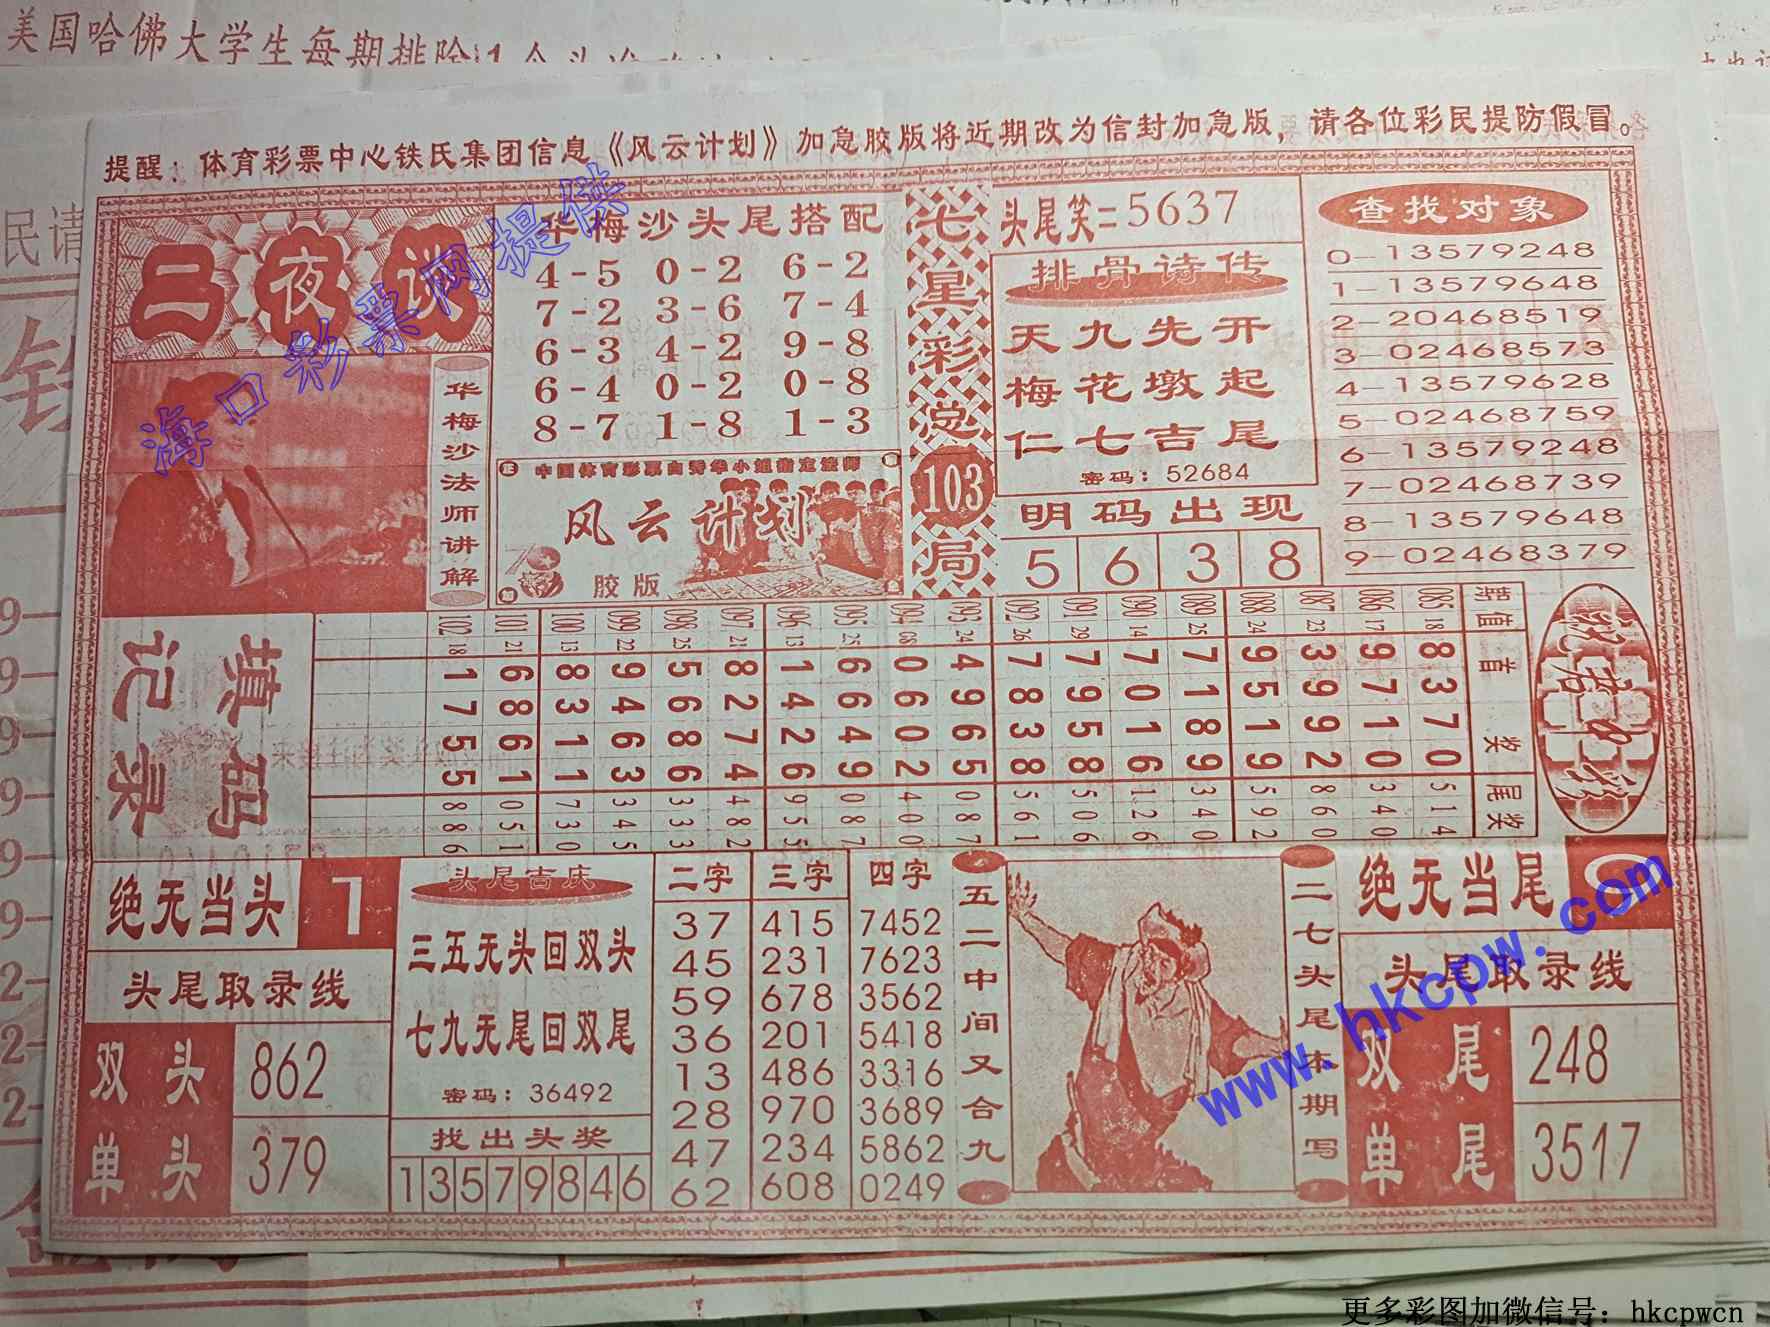 美国哈佛大学生每期排除
民请
提醒：体育彩票中心铁氏集团信息《风云计划》加急胶版将近期改为信封加急版，请各位彩民提防假冒。
二夜谈
华梅沙法师讲解
华梅沙头尾搭配
4-5 0-2 6-2
7-2 3-6 7-4
6-3 4-2 9-8
6-4 0-2 0-8
8-7 1-8 1-3
中国体育彩票白秀华小姐指定法师
风云计划
胶版
七星彩总103局
头尾笑=5637
排骨诗传
天九先开
梅花墩起
仁七吉尾
密码：52684
明码出现
5 6 3 8
查找对象
0-13579248
1-13579648
2-20468519
3-02468573
4-13579628
5-02468759
6-13579248
7-02468739
8-13579648
9-02468379
填码记录
期 值 首奖 尾奖
085 18 8370 514
086 17 9710 340
087 23 3992 860
088 24 9519 592
089 25 7189 340
090 14 7016 126
091 29 7958 506
092 26 7838 561
093 24 4965 087
094 08 0602 400
095 25 6649 087
096 13 1426 955
097 21 8274 482
098 25 5686 333
099 22 9463 345
100 13 8311 730
101 21 6861 051
102 18 1755 886
绝无当头
头尾取录线
双头 862
单头 379
头尾吉庆
三五无头回双头
七九无尾回双尾
密码：36492
找出头奖
13579846
二字 三字 四字
37 415 7452
45 231 7623
59 678 3562
36 201 5418
13 486 3316
28 970 3689
47 234 5862
62 608 0249
五二中间又合九
二七头尾本期写
绝无当尾
头尾取录线
双尾 248
单尾 3517
海口彩票网提供
www.hkcpw.com
更多彩图加微信号：hkcpwcn